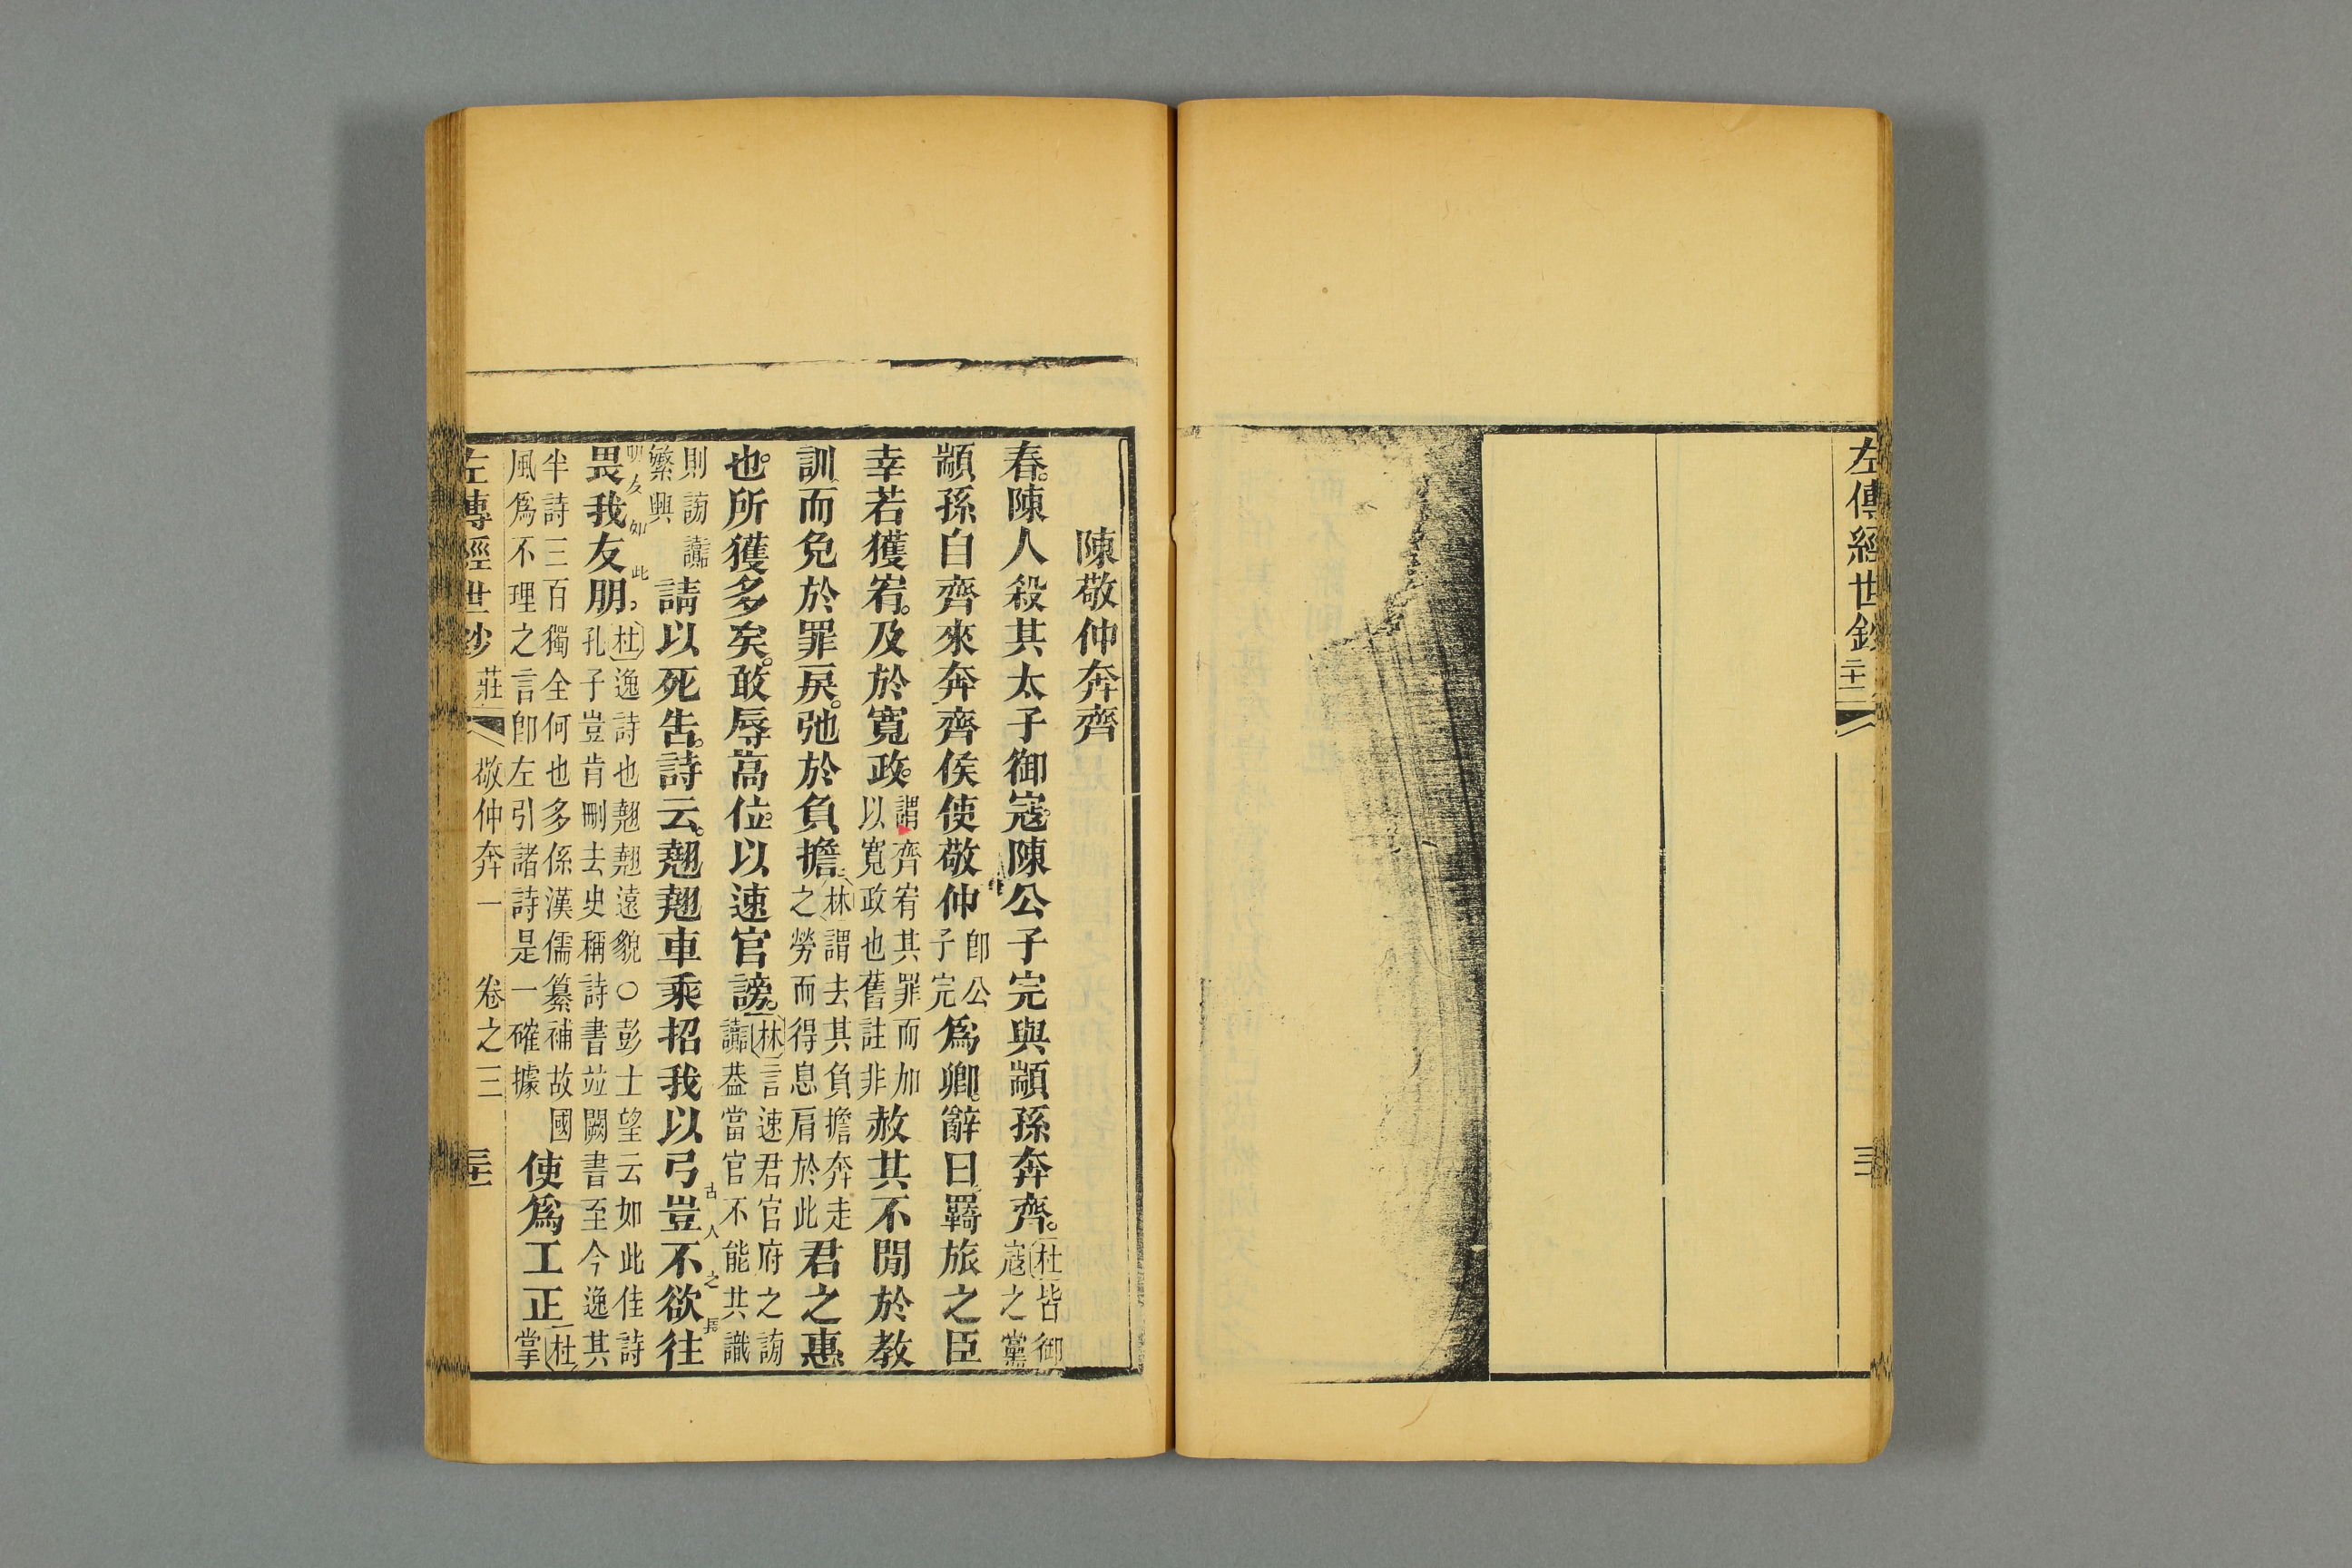 左傳經世鈔
二十二
三十
陳敬仲奔齊
春陳人殺其太子御寇陳公子完與顓孫奔齊杜皆御寇之黨
顓孫自齊來奔齊侯使敬仲卽公子完爲卿辭曰羇旅之臣
幸若獲宥及於寬政謂齊宥其罪而加以寬政也舊註非赦其不閒於教
訓而免於罪戾弛於負擔林謂去其負擔奔走之勞而得息肩於此君之惠
也所獲多矣敢辱高位以速官謗林言速君官府之謗讟葢當官不能共識
則謗讟繁興請以死告詩云翹翹車乘招我以弓豈不欲往
古人之長
畏我友朋杜逸詩也翹翹遠貌○彭士望云如此佳詩孔子豈肯刪去史稱詩書竝闕書至今逸其
朋友如此
半詩三百獨全何也多係漢儒纂補故國風爲不理之言卽左引諸詩是一確據使爲工正杜掌
左傳經世鈔 莊 敬仲奔一 卷之三